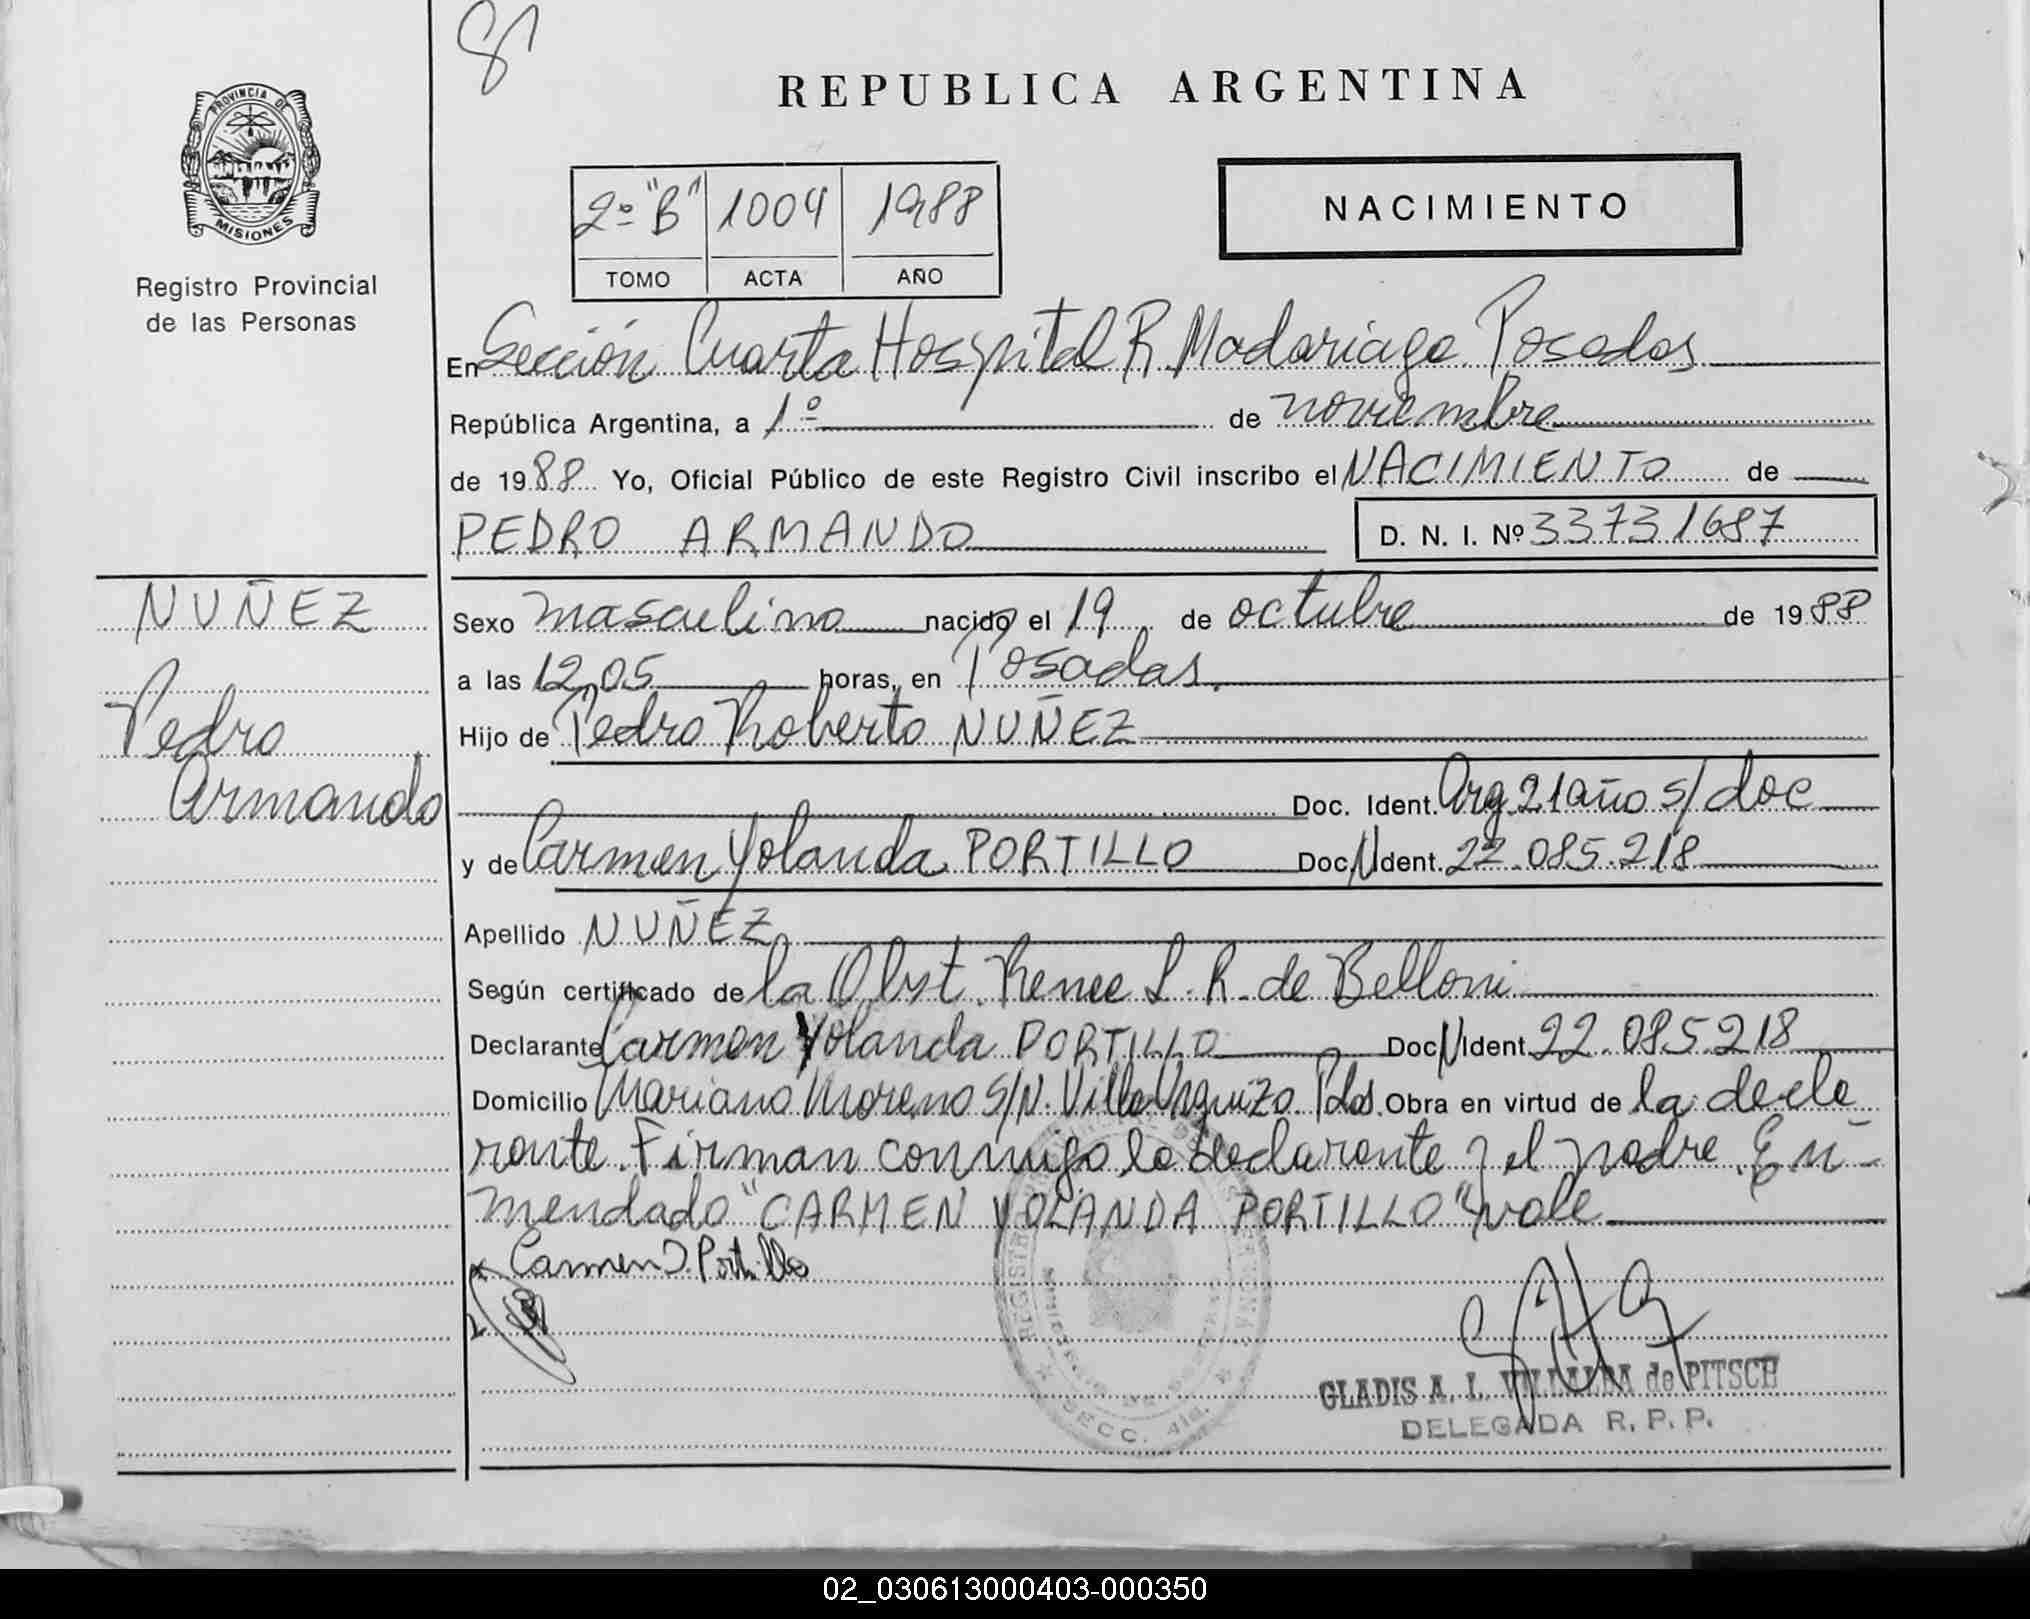 81
REPUBLICA ARGENTINA
PROVINCIA DE
MISIONES
Registro Provincial
de las Personas
2º "B" 1004 1988
TOMO ACTA AÑO
NACIMIENTO
En Sección Cuarta Hospital R. Madariaga Posadas
República Argentina, a 1º de noviembre
de 1988 Yo, Oficial Público de este Registro Civil inscribo el NACIMIENTO de
PEDRO ARMANDO D. N. I. Nº 33731687
NUÑEZ
Pedro
Armando
Sexo masculino nacido el 19 de octubre de 1988
a las 12,05 horas, en Posadas.
Hijo de Pedro Roberto NUÑEZ
Doc. Ident. Arg. 21 año s/doc
y de Carmen Yolanda PORTILLO Doc. N Ident. 22.085.218
Apellido NUÑEZ
Según certificado de la Obst. Renee L. R. de Belloni
Declarante Carmen Yolanda PORTILLO Doc N Ident. 22.085.218
Domicilio Mariano Moreno S/N. Villa Urquiza Pdas. Obra en virtud de la decla
rante. Firman conmigo la declarante y el padre. En-
mendado "CARMEN YOLANDA PORTILLO" vale
x Carmen Y. Portillo
GLADIS A. I. VILLALBA de PITSCH
DELEGADA R. P. P.
SECC. 4ta.
02_030613000403-000350